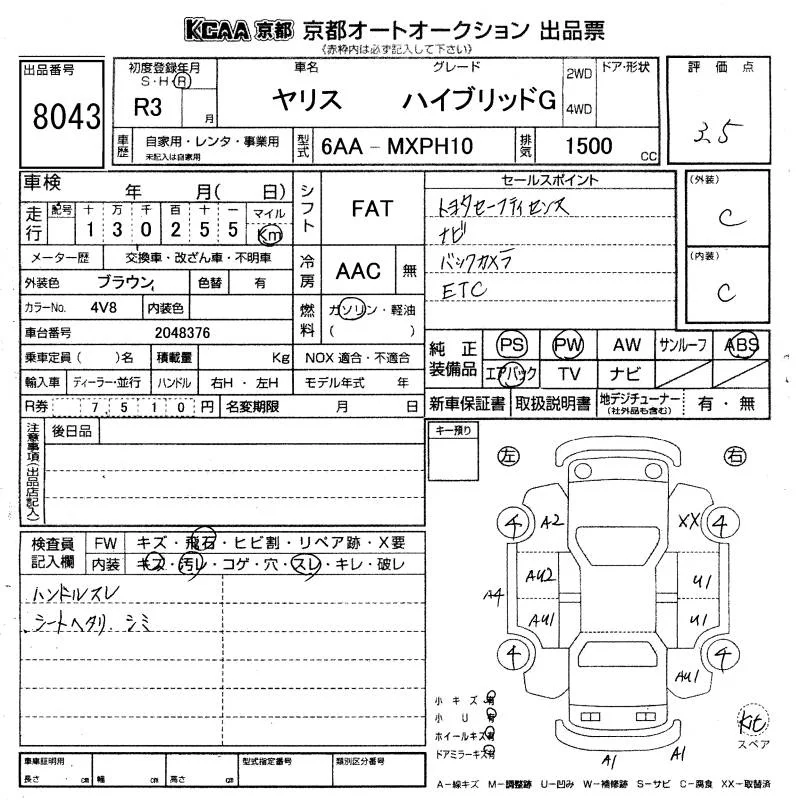 KCAA 京都 京都オートオークション 出品票
《赤枠内は必ず記入して下さい》
出品番号
8043
初度登録年月
S・H・R
R3 月
車名
ヤリス
グレード
ハイブリッドG
2WD
4WD
ドア・形状
評価点
3.5
車歴
自家用・レンタ・事業用
未記入は自家用
型式
6AA - MXPH10
排気
1500 CC
車検 年 月( 日)
走行
記号 十 万 千 百 十 一 マイル
1 3 0 2 5 5 Km
メーター歴 交換車・改ざん車・不明車
外装色 ブラウン 色替 有
カラーNo. 4V8 内装色
車台番号 2048376
乗車定員( )名 積載量 Kg
輸入車 ディーラー・並行 ハンドル 右H・左H
R券 7 5 1 0 円 名変期限 月 日
シフト FAT
冷房 AAC 無
燃料 ガソリン・軽油
( )
NOX 適合・不適合
モデル年式 年
セールスポイント
トヨタセーフティセンス
ナビ
バックカメラ
ETC
(外装)
C
(内装)
C
純正装備品
PS PW AW サンルーフ ABS
エアバック TV ナビ
新車保証書 取扱説明書 地デジチューナー (社外品も含む) 有・無
注意事項(出品店記入)
後日品
キー預り
左 右
検査員記入欄
FW キズ・飛石・ヒビ割・リペア跡・X要
内装 キズ・汚レ・コゲ・穴・スレ・キレ・破レ
ハンドルスレ
シートヘタリ. シミ
4 A2 XX 4
AU2 U1
A4
AU1 U1
4 4
AU1
A1 A1
小キズ有
小U有
ホイールキズ有
ドアミラーキズ有
Kit
スペア
車庫証明用
長さ cm 幅 cm 高さ cm
型式指定番号
類別区分番号
A-線キズ M-調整跡 U-凹み W-補修跡 S-サビ C-腐食 XX-取替済